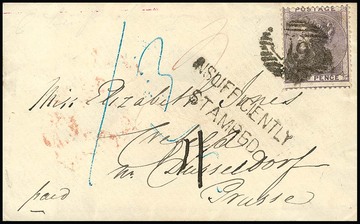 POSTAGE
PENCE
13
INSUFFICIENTLY
STAMPED
Miss Elizabeth Jones
Crefeld
nr Dusseldorf
Prusse
paid